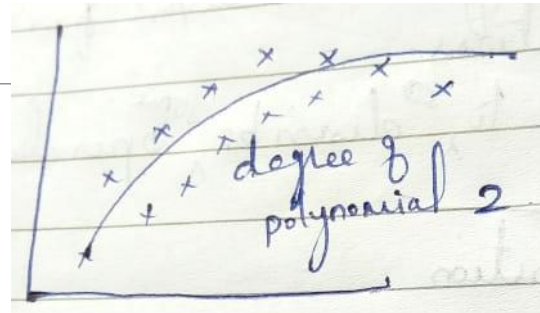 degree of
polynomial 2